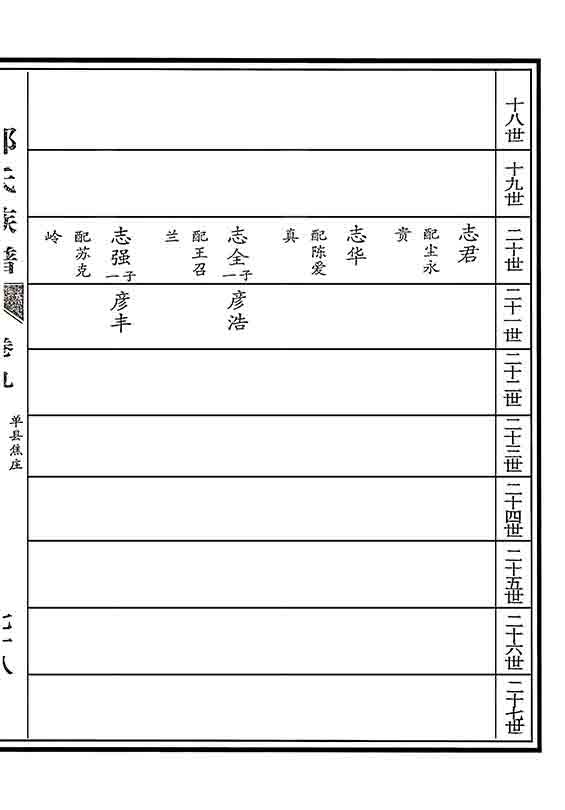 十八世
十九世
二十世
志君
配尘永
贵
志华
配陈爱
真
志全
一子
配王召
兰
志强
一子
配苏克
岭
二十一世
彦浩
彦丰
二十二世
二十三世
二十四世
二十五世
二十六世
二十七世
氏族谱
卷九
单县焦庄
七十八